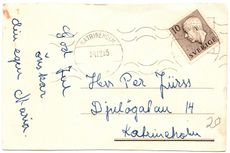 God Jul
önskar
din egen Maria.
KATRINEHOLM
10
SVERIGE
Herr Per Fürss
Djulögatan 14
Katrineholm
20